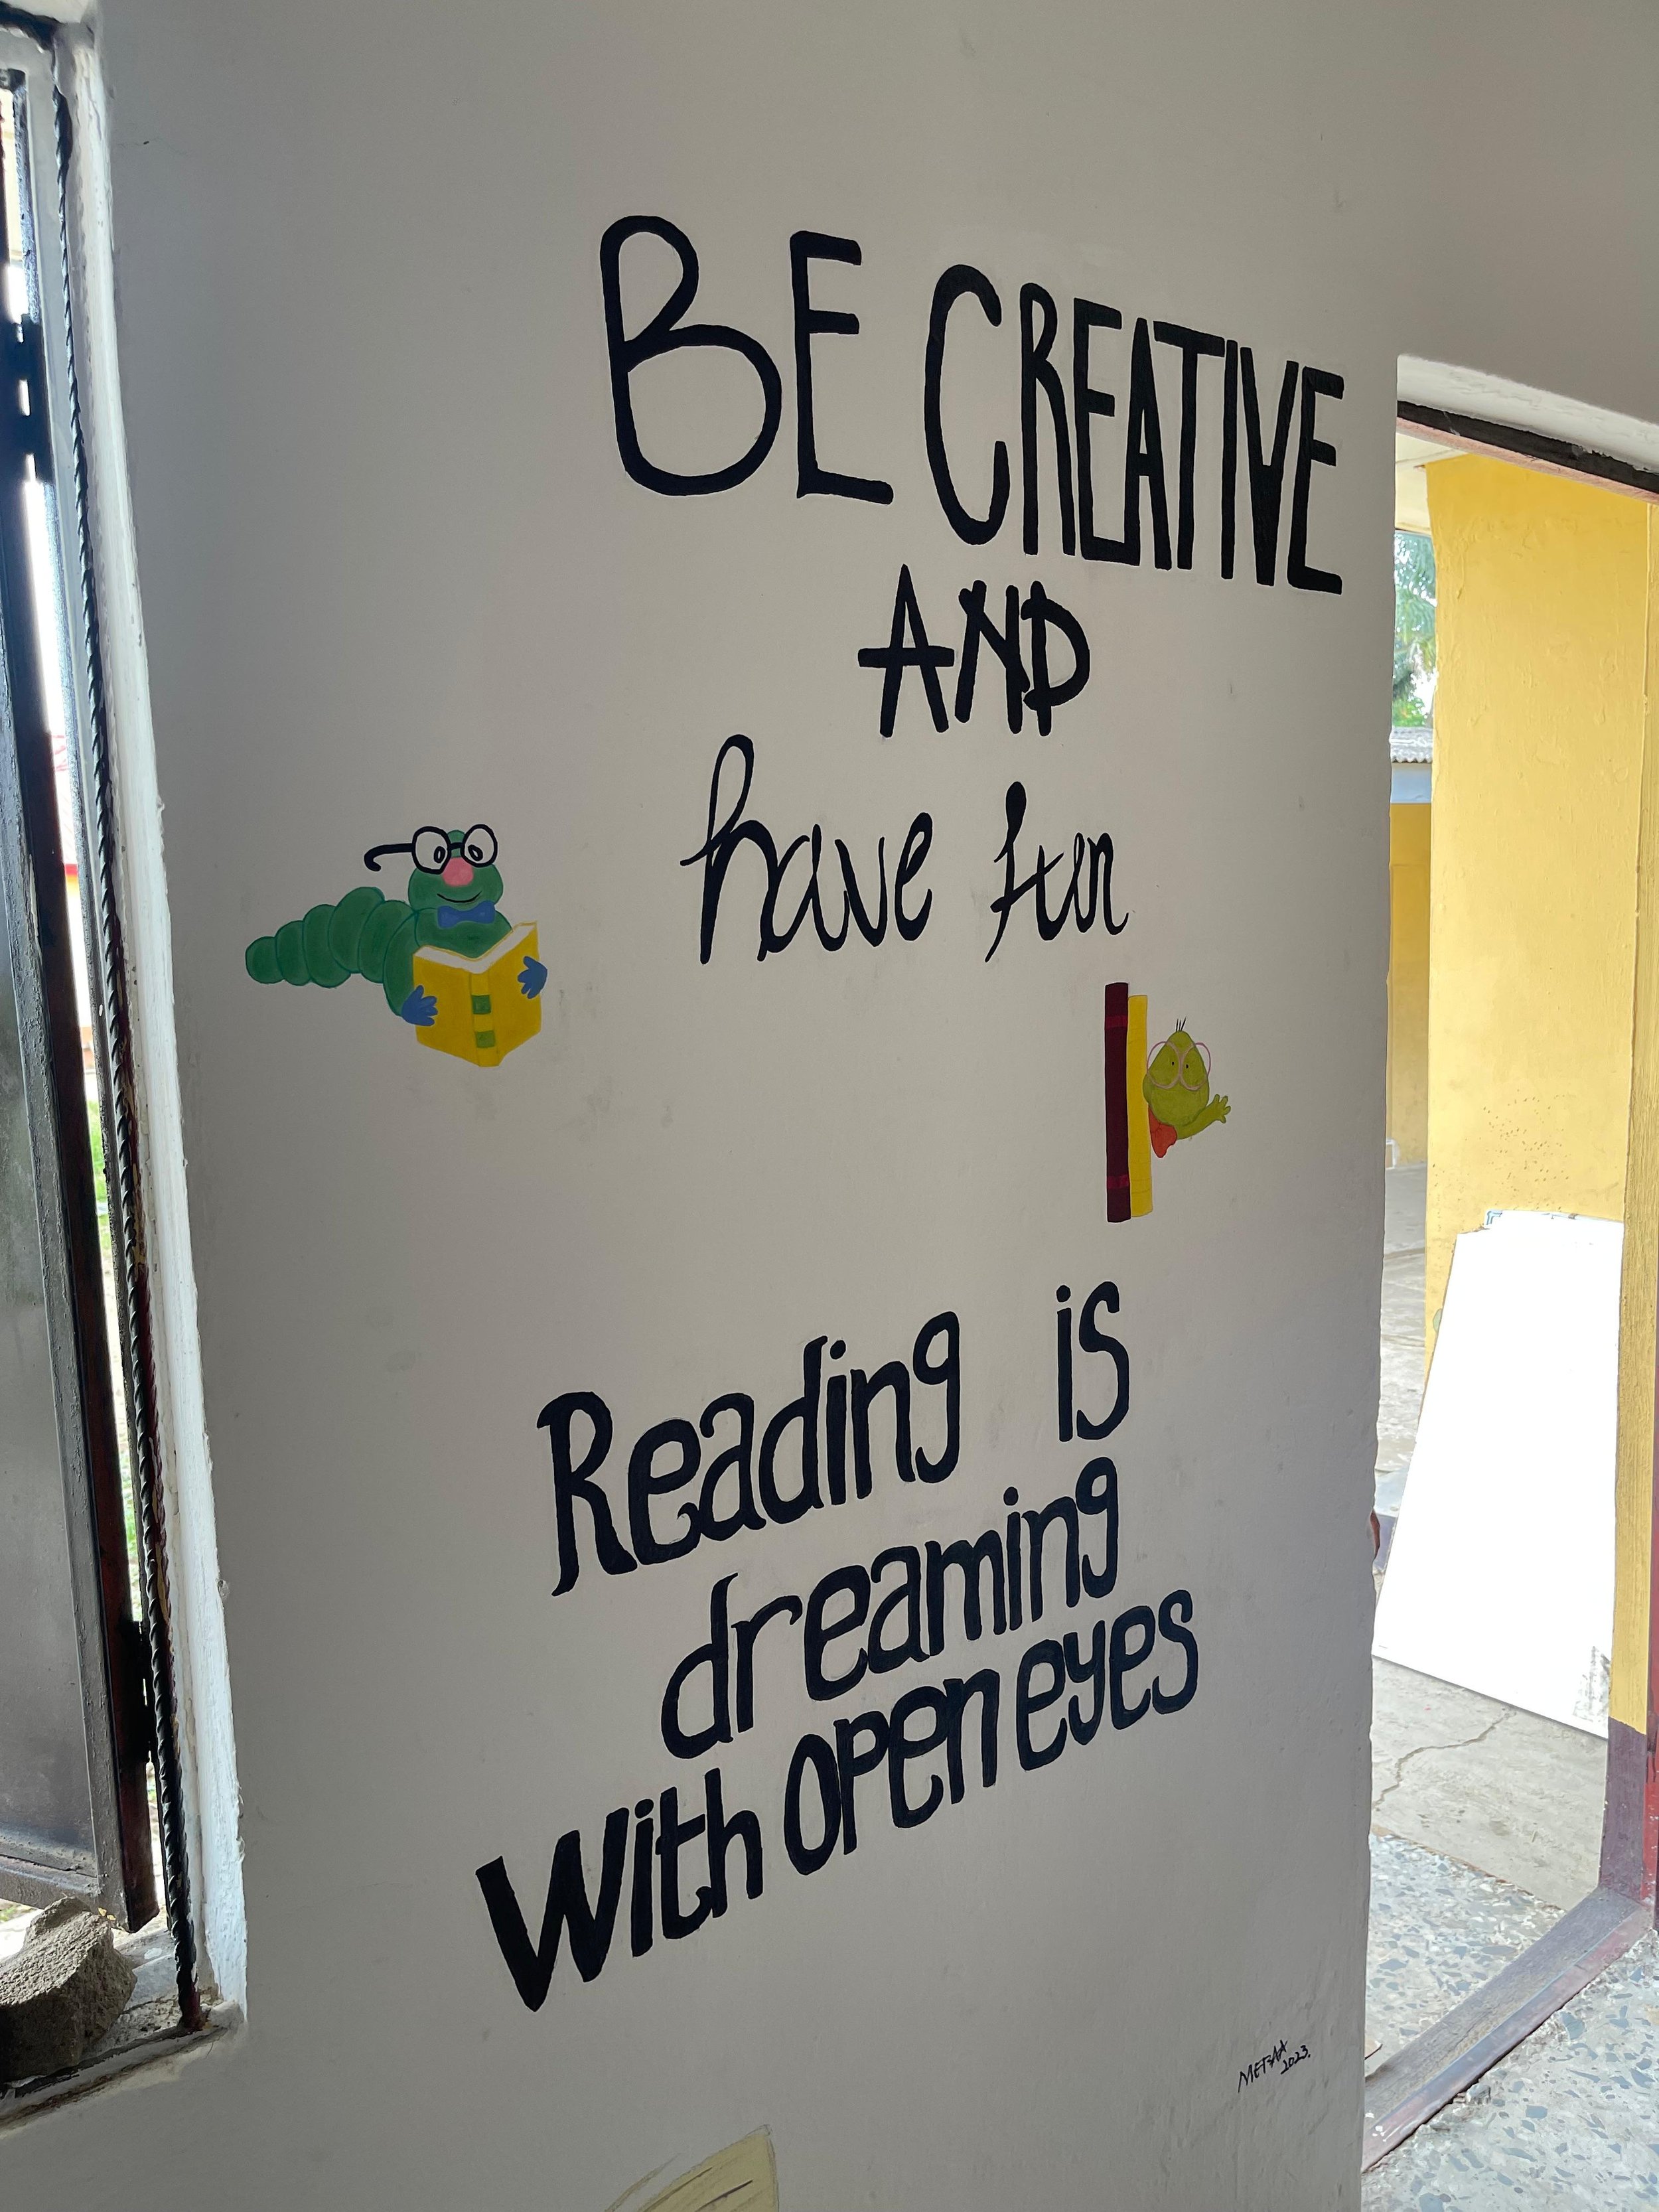 BE CREATIVE
AND
have fun
Reading is
dreaming
with open eyes
2023.